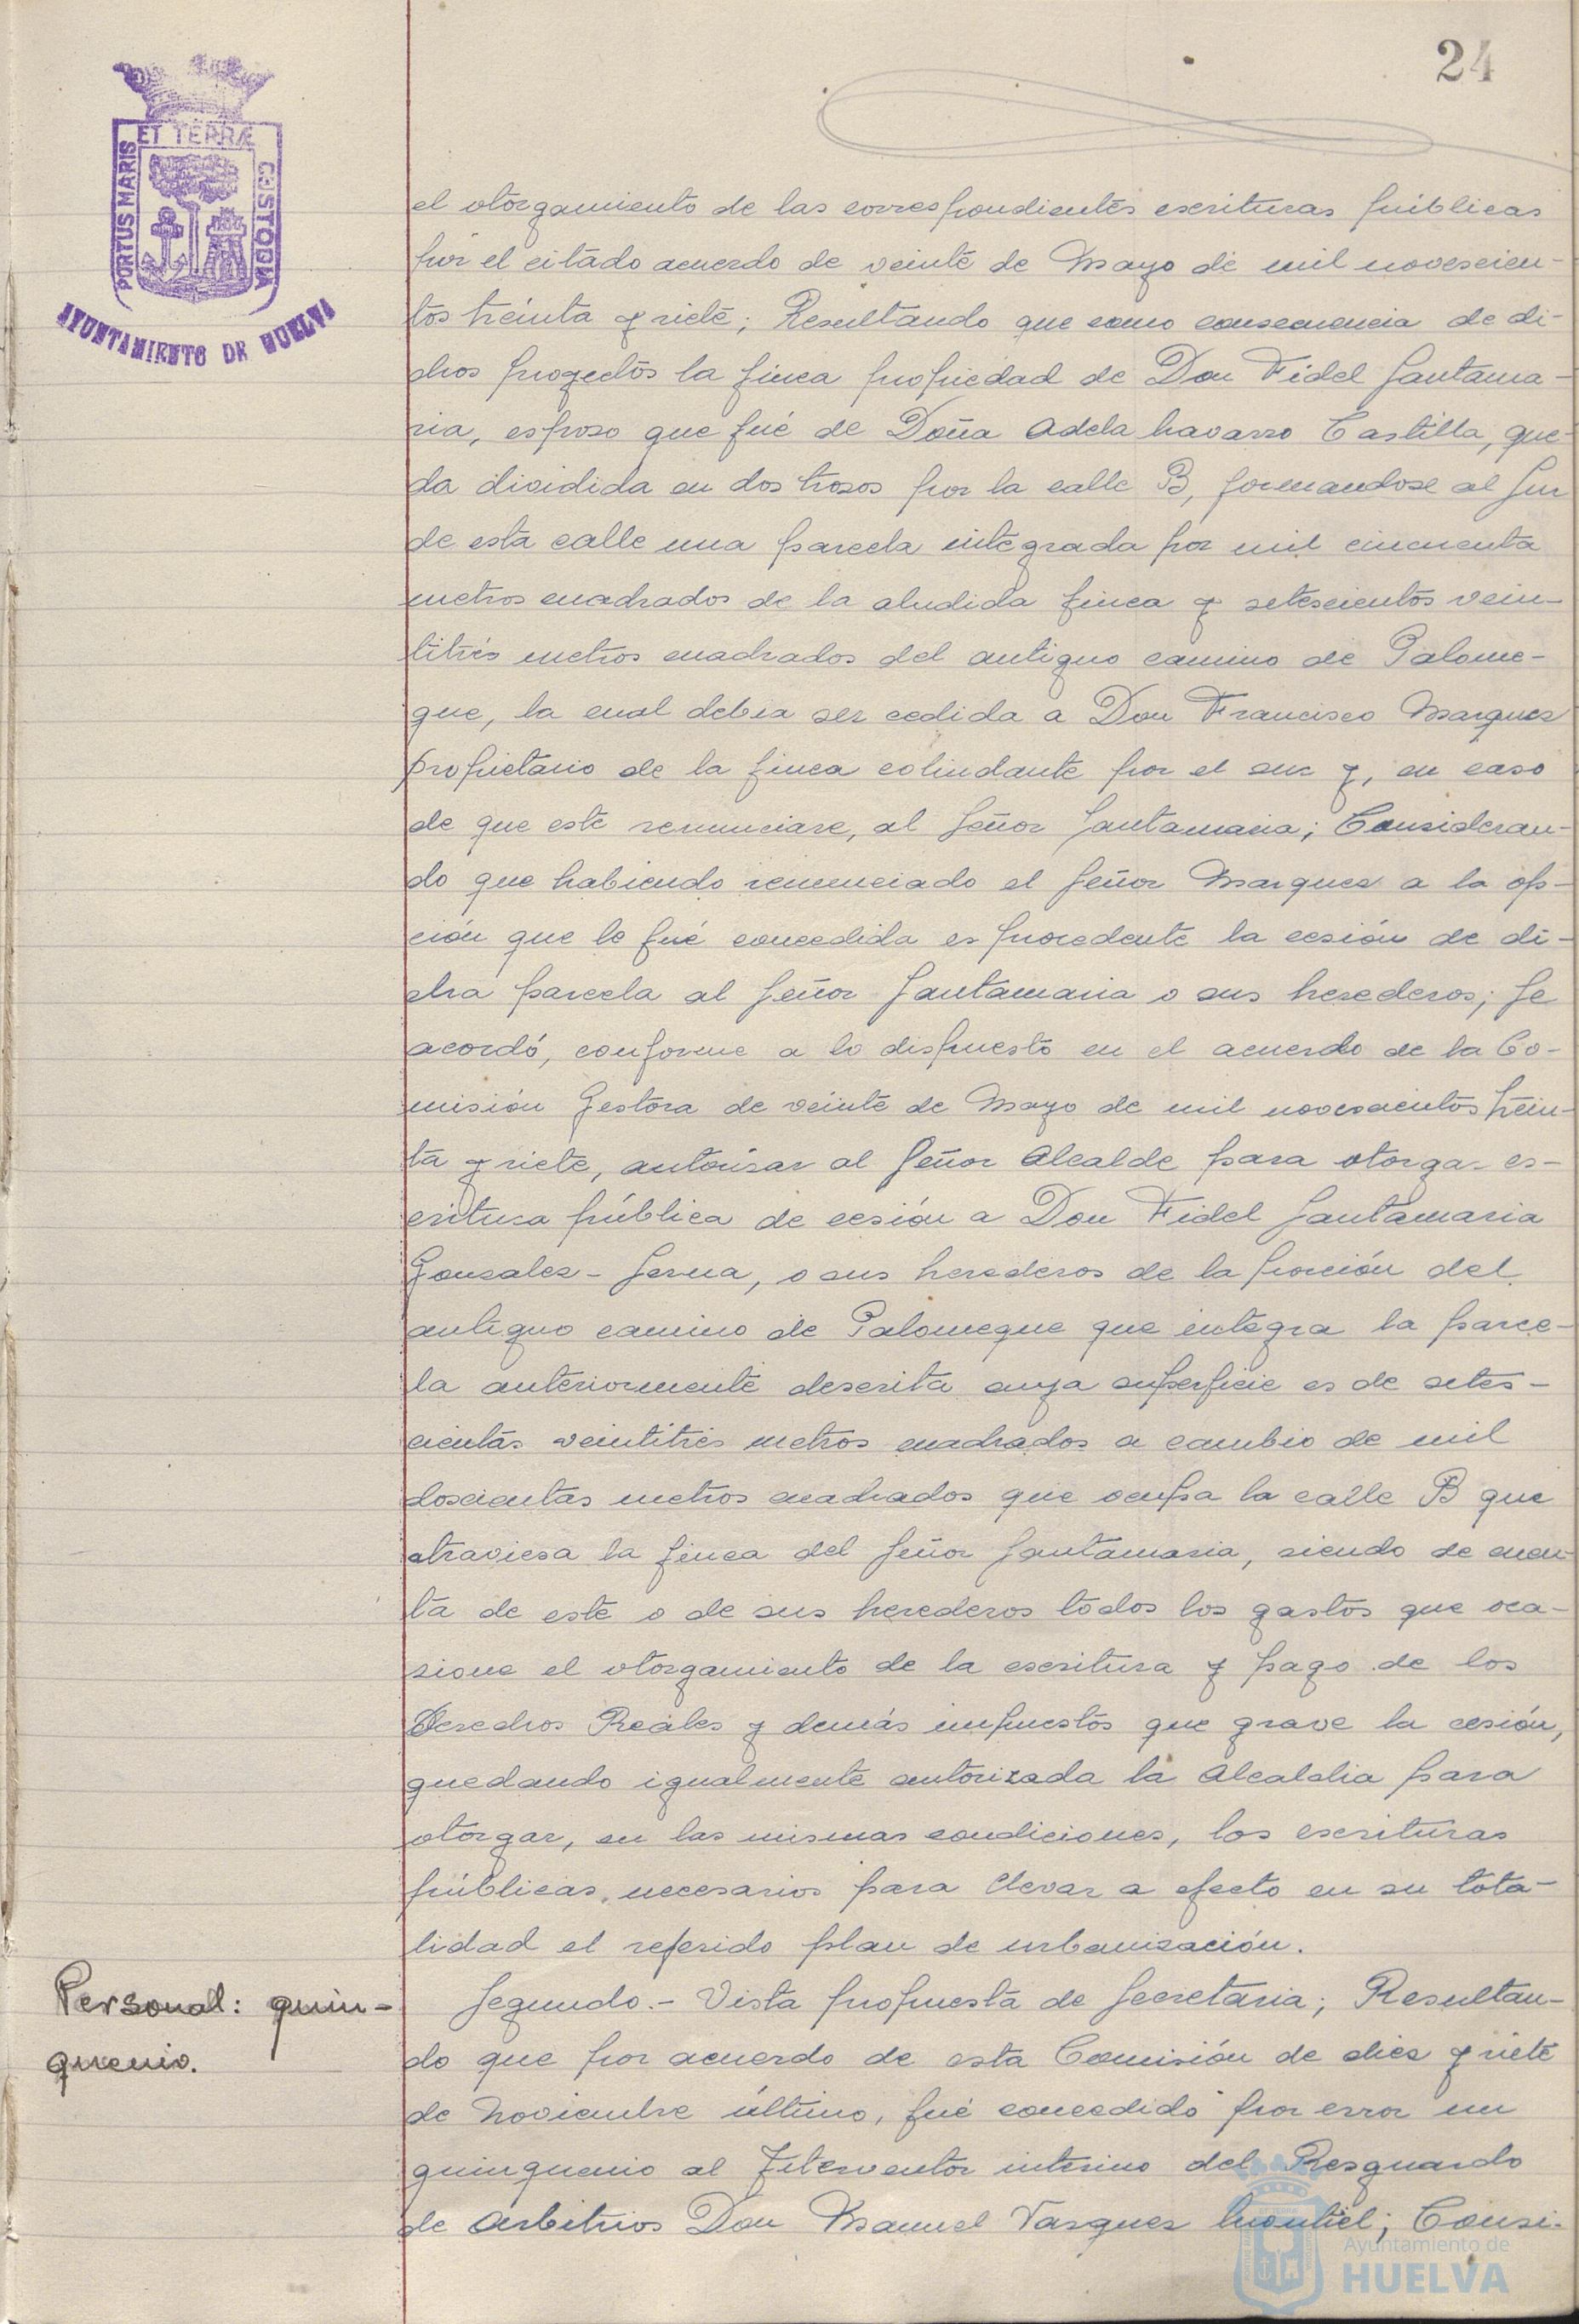 24
PORTUS MARIS ET TERRÆ CUSTODIA
AYUNTAMIENTO DE HUELVA
el otorgamiento de las correspondientes escrituras públicas
por el citado acuerdo de veinte de Mayo de mil novescien-
tos treinta y siete; Resultando que como consecuencia de di-
chos proyectos la finca propiedad de Don Fidel Santama-
ria, esposo que fué de Doña Adela Navarro Castilla, que-
da dividida en dos trosos por la calle B, formandose al Sur
de esta calle una parcela integrada por mil cincuenta
metros cuadrados de la aludida finca y setescientos vein-
titrés metros cuadrados del antiguo camino de Palome-
que, la cual debia ser cedida a Don Francisco Marquez
propietario de la finca colindante por el sur y, en caso
de que este renunciare, al Señor Santamaria; Consideran-
do que habiendo renunciado el Señor Marquez a la op-
ción que le fué concedida es procedente la cesión de di-
cha parcela al Señor Santamaria o sus herederos; Se
acordó, conforme a lo dispuesto en el acuerdo de la Co-
misión Gestora de veinte de Mayo de mil novescientos trein-
ta y siete, autorisar al Señor Alcalde para otorgar es-
critura pública de cesión a Don Fidel Santamaria
Gonsalez-Serna, o sus herederos de la porción del
antiguo camino de Palomeque que integra la parce-
la anteriormente descrita cuya superficie es de setes-
cientas veintitrés metros cuadrados a cambio de mil
doscientas metros cuadrados que ocupa la calle B que
atraviesa la finca del Señor Santamaria, siendo de cuen-
ta de este o de sus herederos todos los gastos que oca-
sione el otorgamiento de la escritura y pago de los
Derechos Reales y demás impuestos que grave la cesión,
quedando igualmente autorizada la Alcaldia para
otorgar, en las mismas condiciones, las escrituras
públicas, necesarios para llevar a efecto en su tota-
lidad el referido plan de urbanisación.
Personal: quin-
quenio.
Segundo.- Vista propuesta de Secretaria; Resultan-
do que por acuerdo de esta Comisión de diez y siete
de Noviembre último, fué concedido por error un
quinquenio al Interventor interino del Resguardo
de Arbitrios Don Manuel Vasquez Montiel; Consi-
Ayuntamiento de
HUELVA